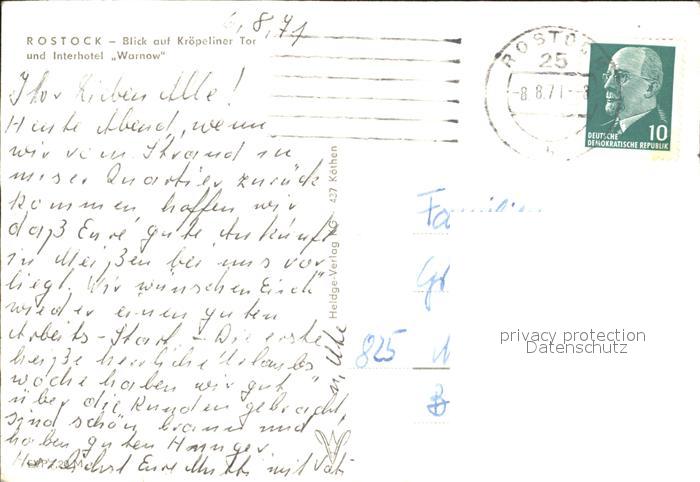 6.8.71
ROSTOCK – Blick auf Kröpeliner Tor
und Interhotel „Warnow"
Ihr Lieben Alle!
Heute Abend, wenn
wir vom Strand in
unser Quartier zurück
kommen hoffen wir
daß Eure gute Ankunft
in Meißen bei uns vor
liegt. Wir wünschen Euch
wieder einen guten
Arbeits-Start – Die erste
heiße herrliche Urlaubs
woche haben wir gut
über die Runden gebracht,
sind schön braun und
haben guten Hunger.
Herzlichst Eure Mutti mit Vati
u. Ute
Heldge-Verlag KG 437 Köthen
ROSTOCK
25
-8.8.71
DEUTSCHE
DEMOKRATISCHE REPUBLIK
10
Familien
825
privacy protection
Datenschutz